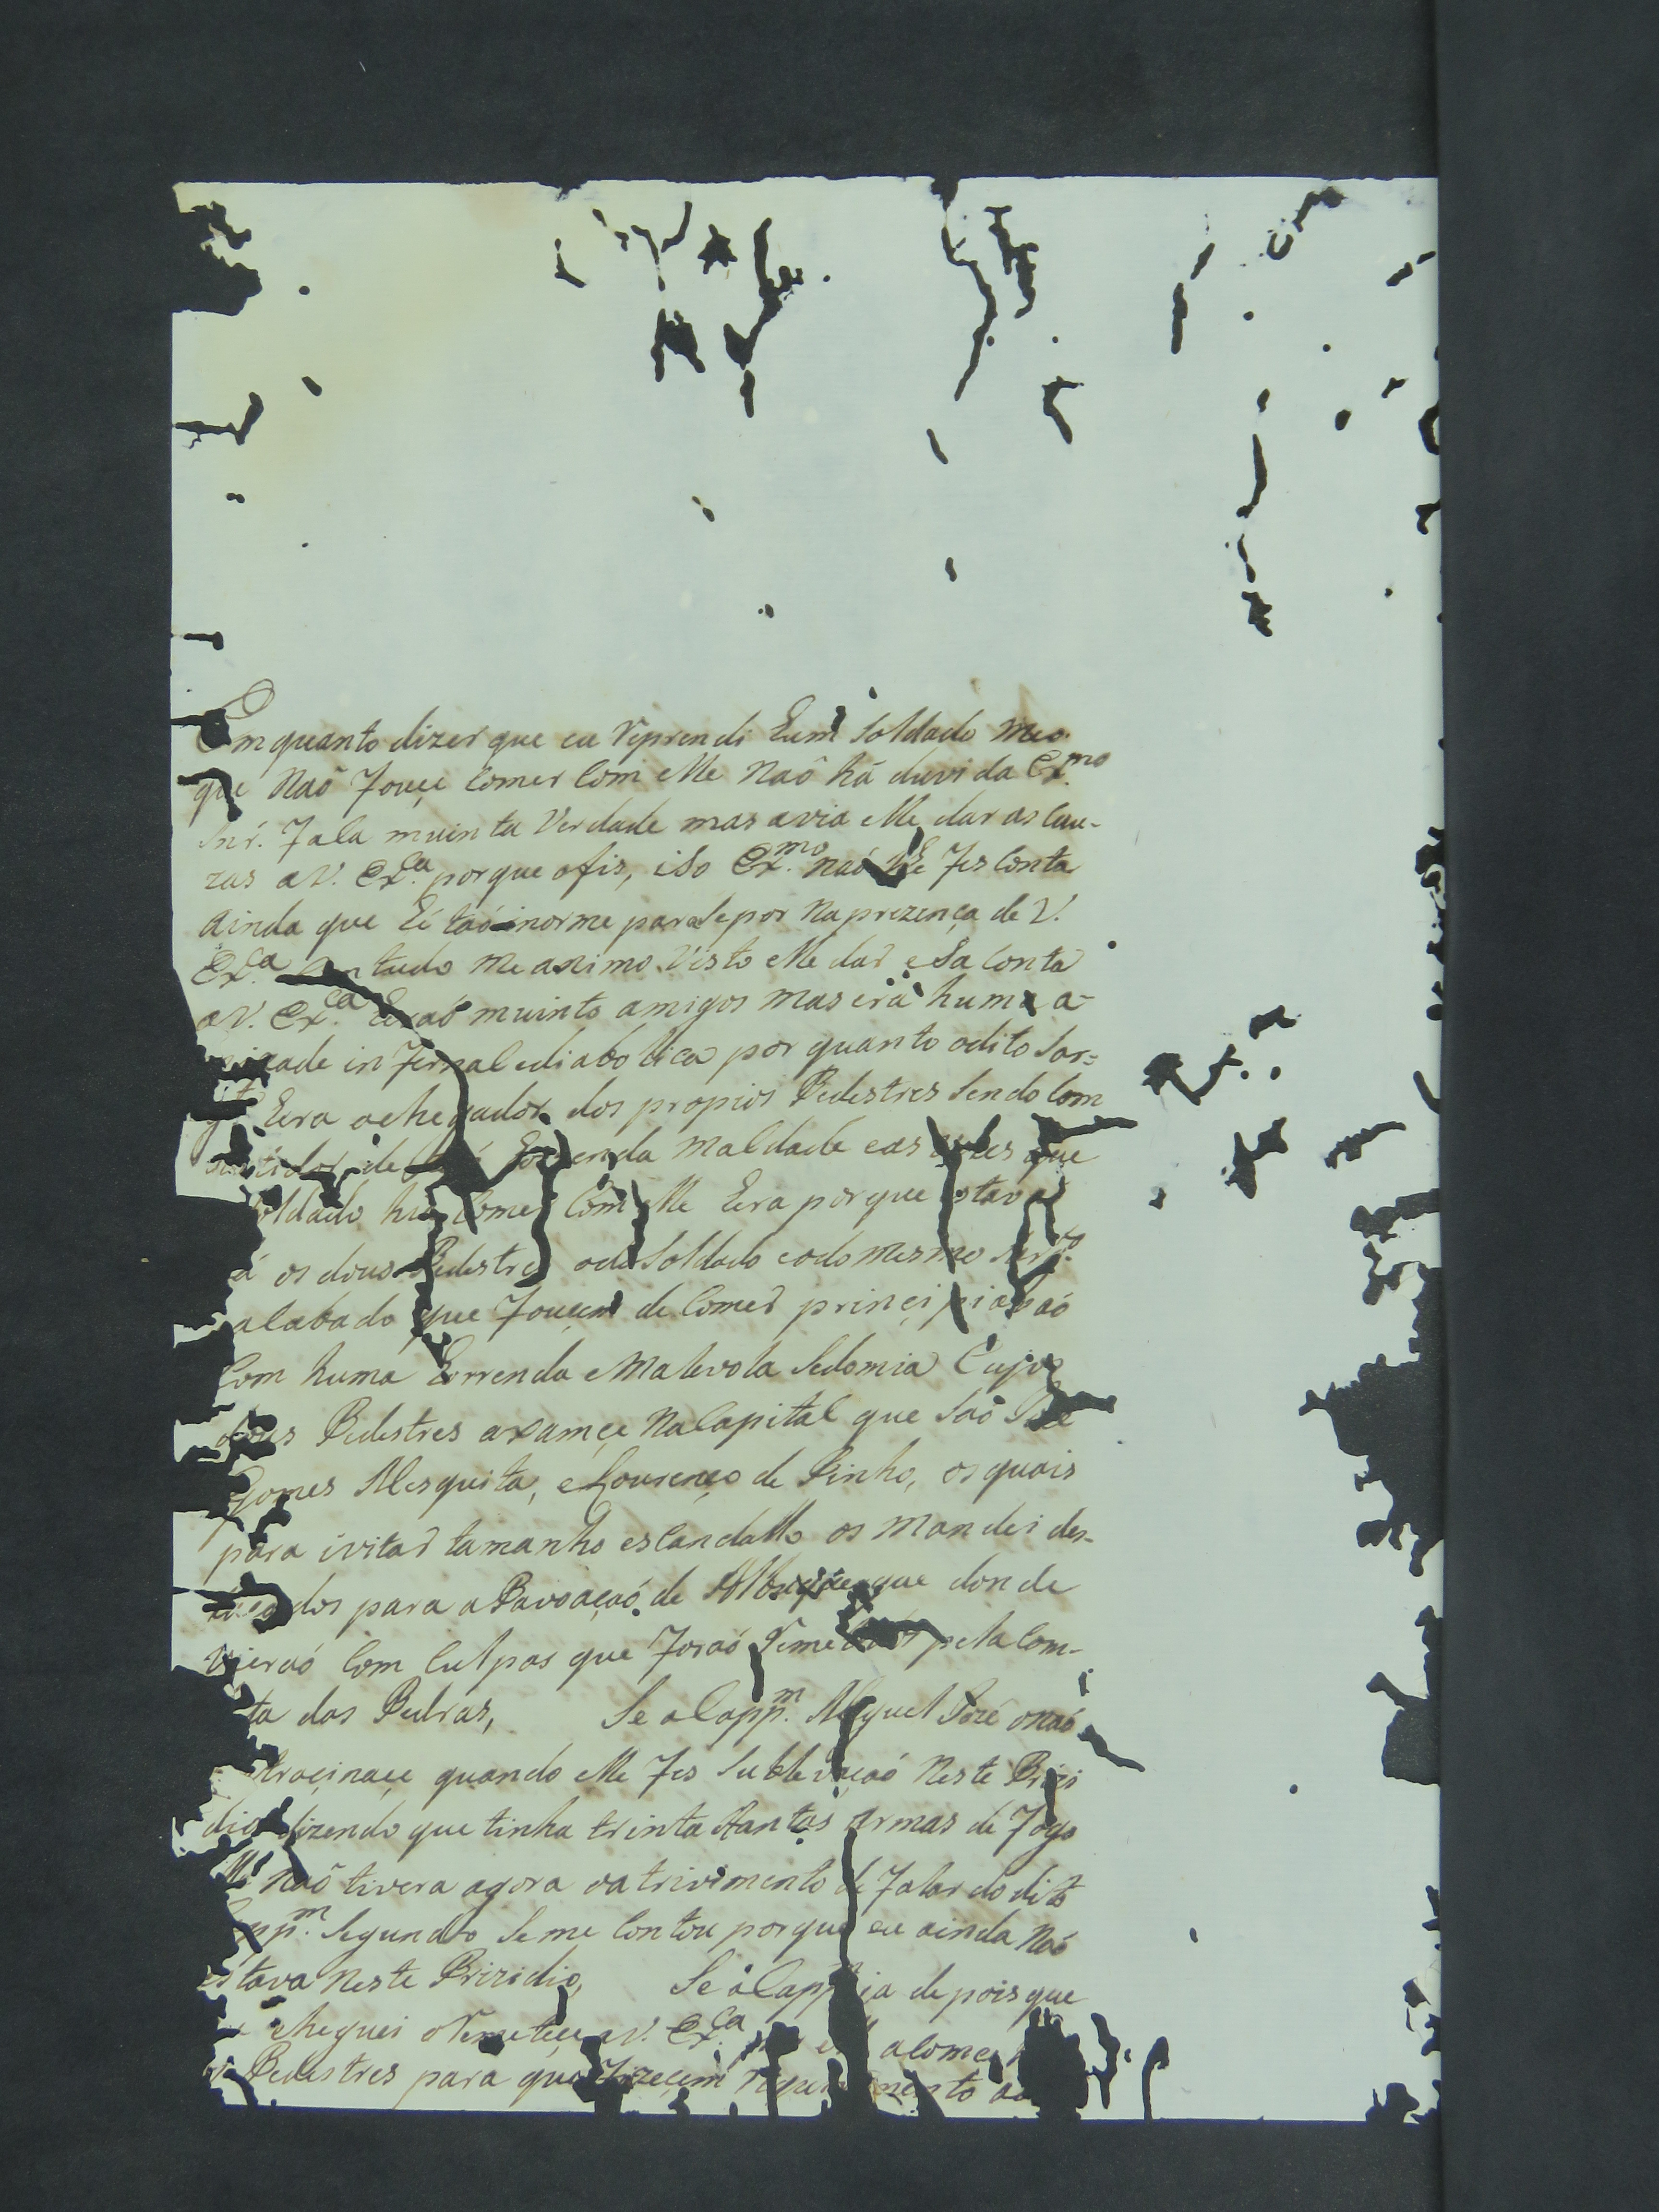 Emquanto dizer que eu Reprendi Eum Soldado meo
que Naõ Fouçe Comer Com elle Naõ há duvida Ex.mo
Snr. Fala muinta Verdade mas avia elle dar as Cau-
zas a V. Ex.ca porque ofis, iSo Ex.mo naõ Fes Conta
Ainda que Eé taõ inorme para Se por Na prezença de V.
Ex.ca tudo me animo Visto elle dar eSa Conta
a V. Ex.ca Eraõ muinto amigos mas era huma a-
mizade infernal ediabolica por quanto odito Sar=
g.to Eera achegador dos propios Pedestres Sendo Com
de Maldade eas que
Soldado Comer Com elle Eera porque estava
os dous Pedestres ode Soldado eodo mesmo
alabado que Fouçem de Comer prinçipiavaõ
Com huma Eorrenda eMalevola Sedomia Cujos
dous Pedestres axamçe Na Capital que Saõ
Gomes Mesquita, eLourenço de Pinho, os quais
para ivitar tamanho escandallo os Mandei des-
dos para a Pavoaçaõ de Albuquerque donde
Vieraõ Com Culpas que Foraõ pela Com-
ta das Pedras, Se o Capp.m Miguel Jozé onaõ
troçinaçe quando elle Fes Sublevaçaõ Neste Prizi
dio dizendo que tinha trinta etantas armas de Fogo
Naõ tivera agora oatrivimento de Falar do dito
Capp.m Segundo Se me Contou porque eu ainda Naõ
estava Neste Prizidio, Se o depois que
cheguei oRemeteçe a V. Ex.ca
Pedestres para que Fizeçem